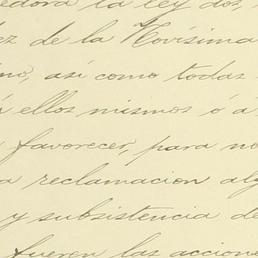 dora la ley dos
ez de la Novísima
no, así como todas
ellos mismos ó á
favorecer, para no
a reclamacion al
y subsistencia de
fueren las accione